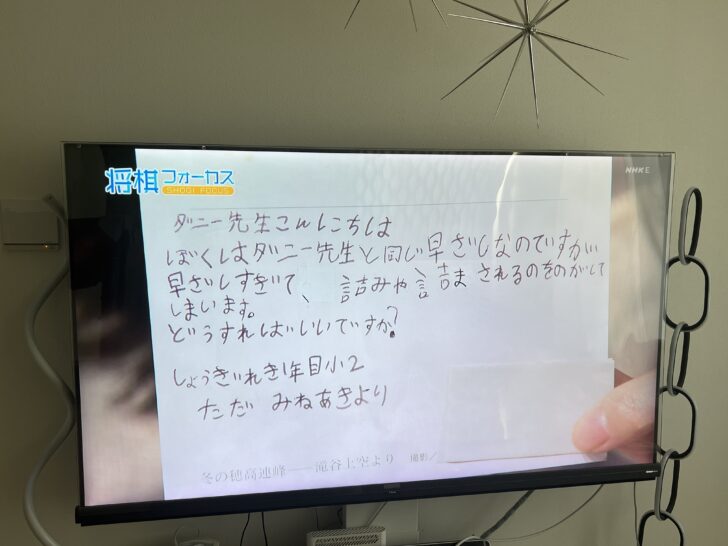 将棋フォーカス
SHOGI FOCUS
NHK E
ダニー先生こんにちは
ぼくはダニー先生と同じ早ざしなのですが
早ざしすぎて、詰みや詰まされるのをのがして
しまいます。
どうすればいいですか?
しょうぎれき1年目小2
ただ みねあきより
冬の穂高連峰──滝谷上空より 撮影/